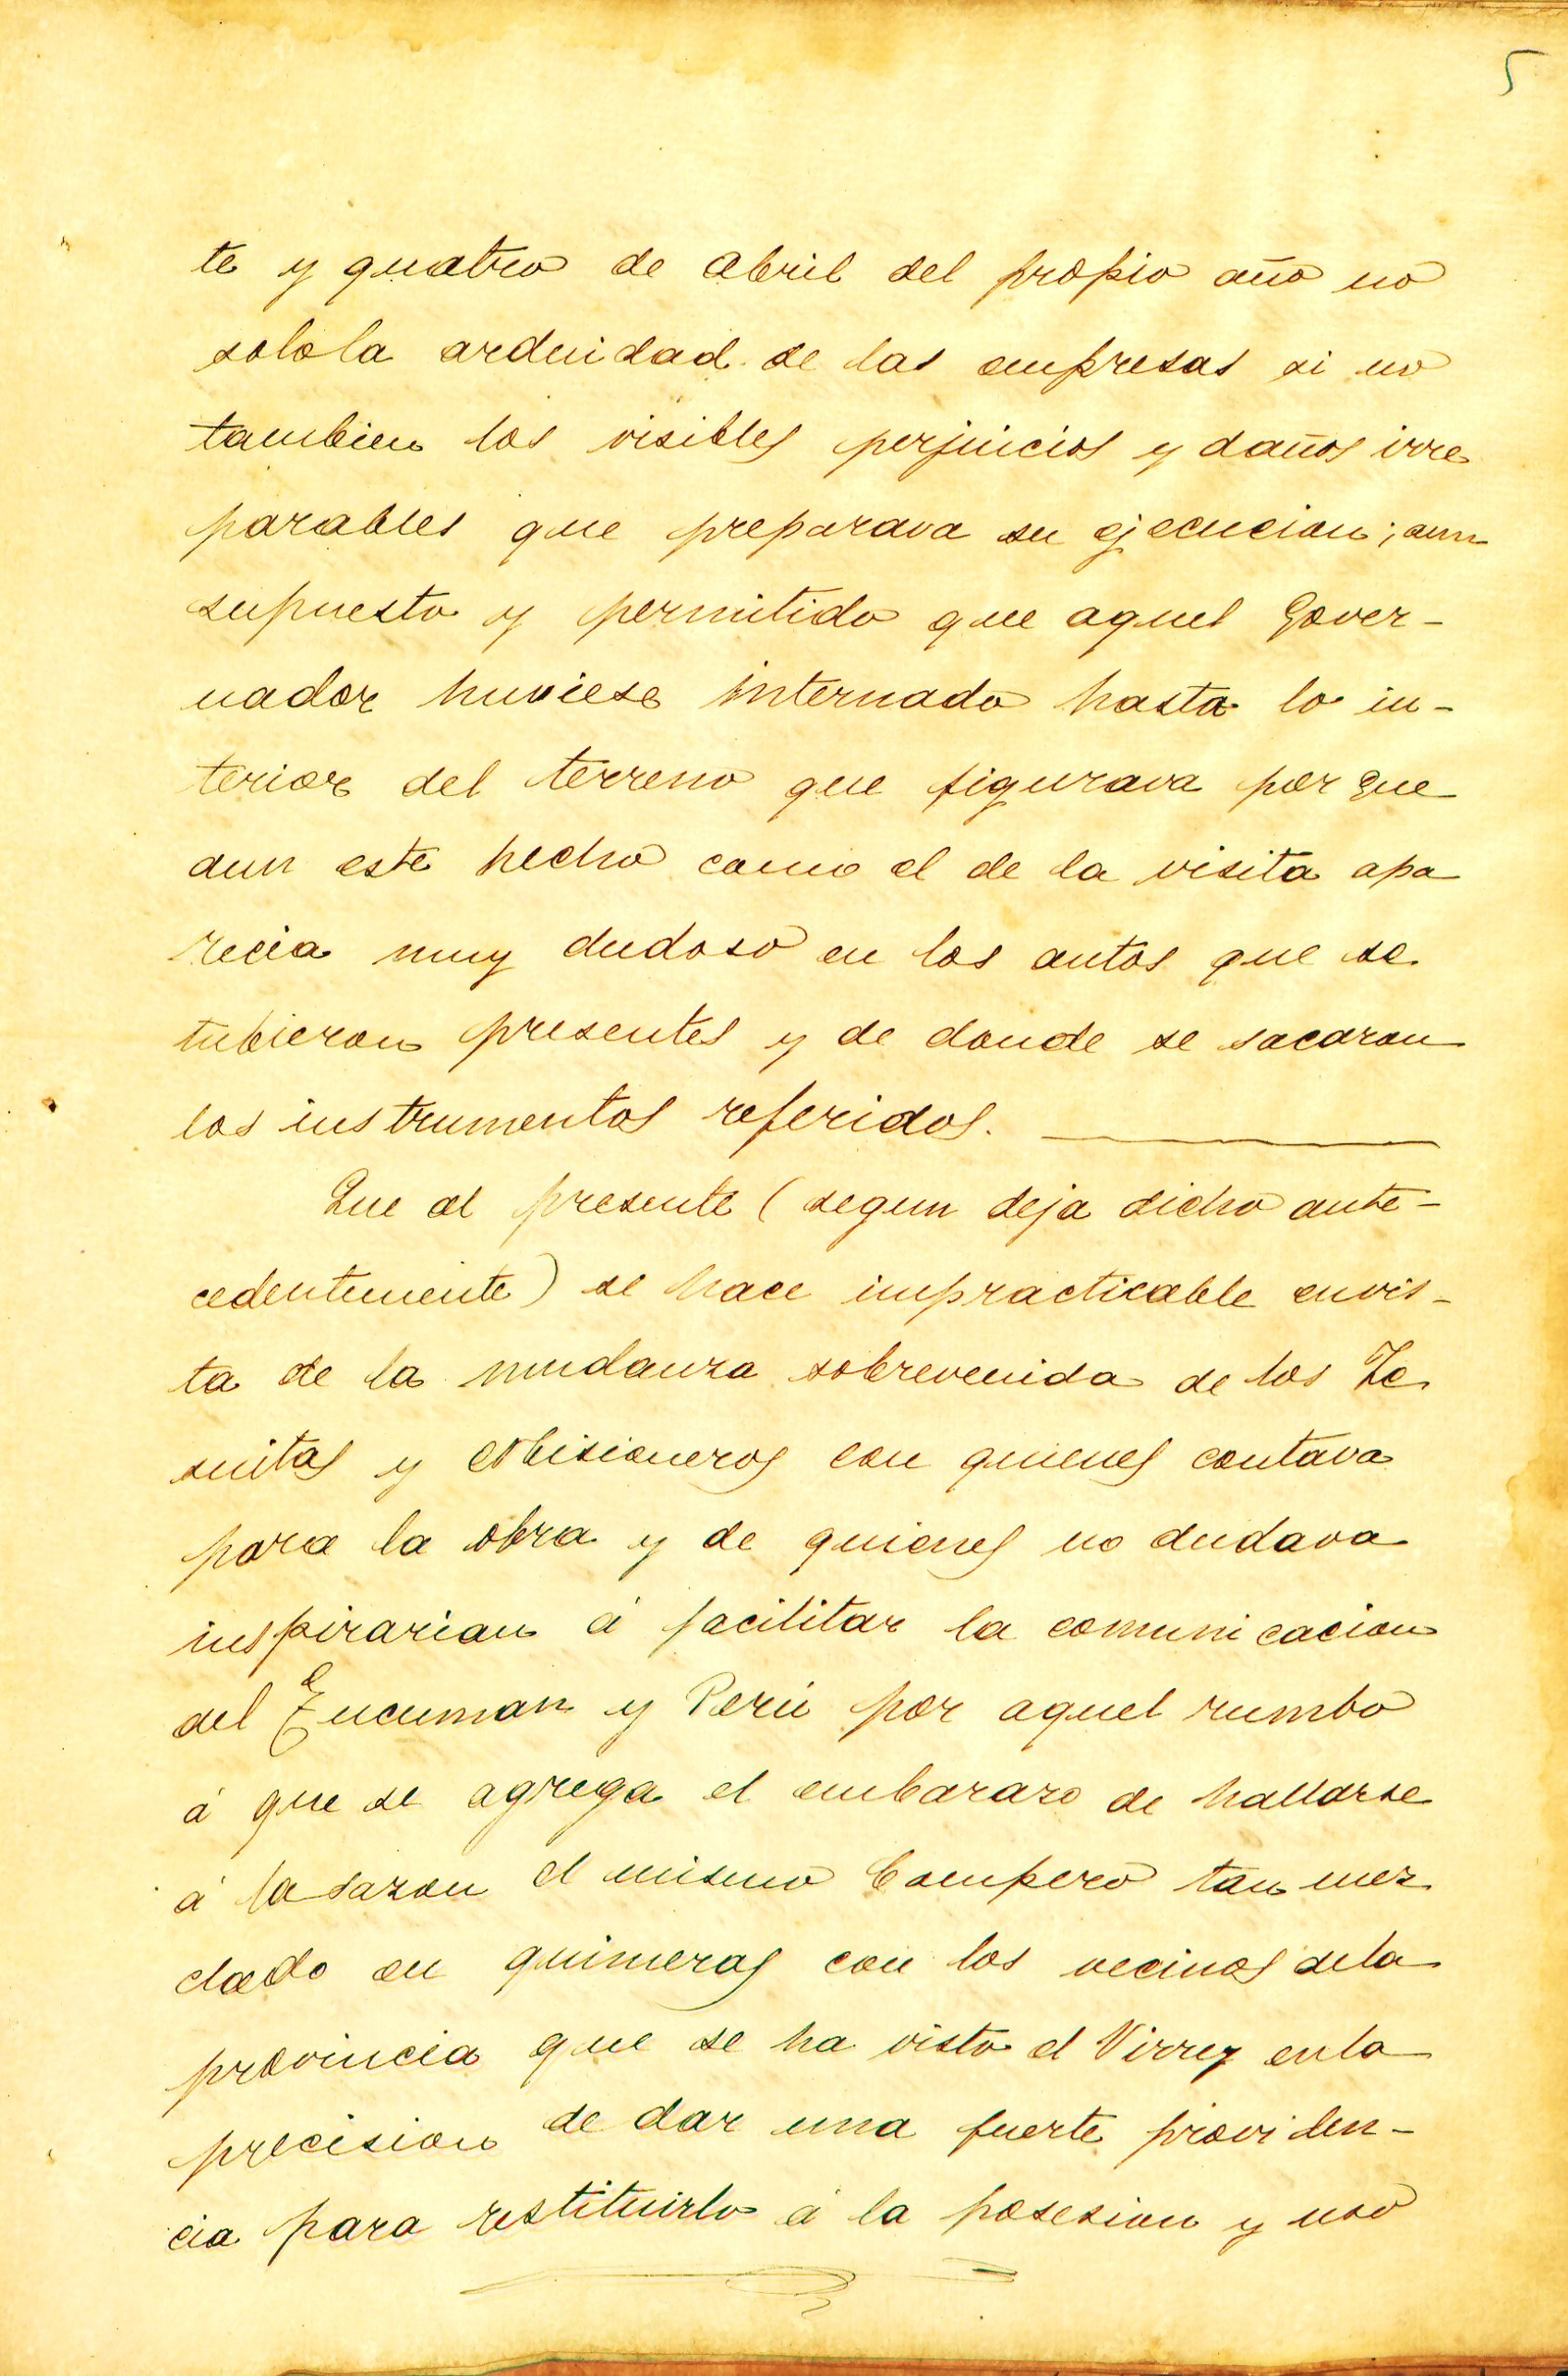 5
te y quatro de Abril del propio año no
solola arduidad de las empresas si no
tambien los visibles perjuicios y daños irre
parables que preparava su ejecucion; aun
supuesto y permitido que aquel Gover-
nador huviese internado hasta lo in-
terior del terreno que figurava por que
aun este hecho como el de la visita apa
recia muy dudoso en los autos que se
tubieron presentes y de donde se sacaron
los instrumentos referidos.
Que al presente (segun deja dicho ante-
cedentemente) se hace impracticable envis-
ta de la mudanza sobrevenida de los Je
suitas y Misioneros con quienes contava
para la obra y de quienes no dudava
inspirarian á facilitar la comunicacion
del Tucuman y Perú por aquel rumbo
á que se agrega el embarazo de hallarse
á la sazon el mismo Campero tan mez
clado en quimeras con los vecinos dela
provincia que se ha visto el Virrey enla
precision de dar una fuerte providen-
cia para restituirlo á la posesion y uso